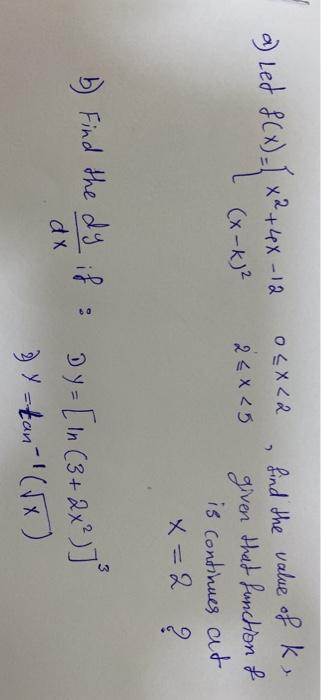 a) Let f(x) = { x² + 4x - 12   0 ≤ x < 2 , find the value of K,
(x - k)²   2 ≤ x < 5   given that function f
is continues at
x = 2 ?
b) Find the dy/dx if : 1) y = [ln(3 + 2x²)]³
2) y = tan⁻¹(√x)